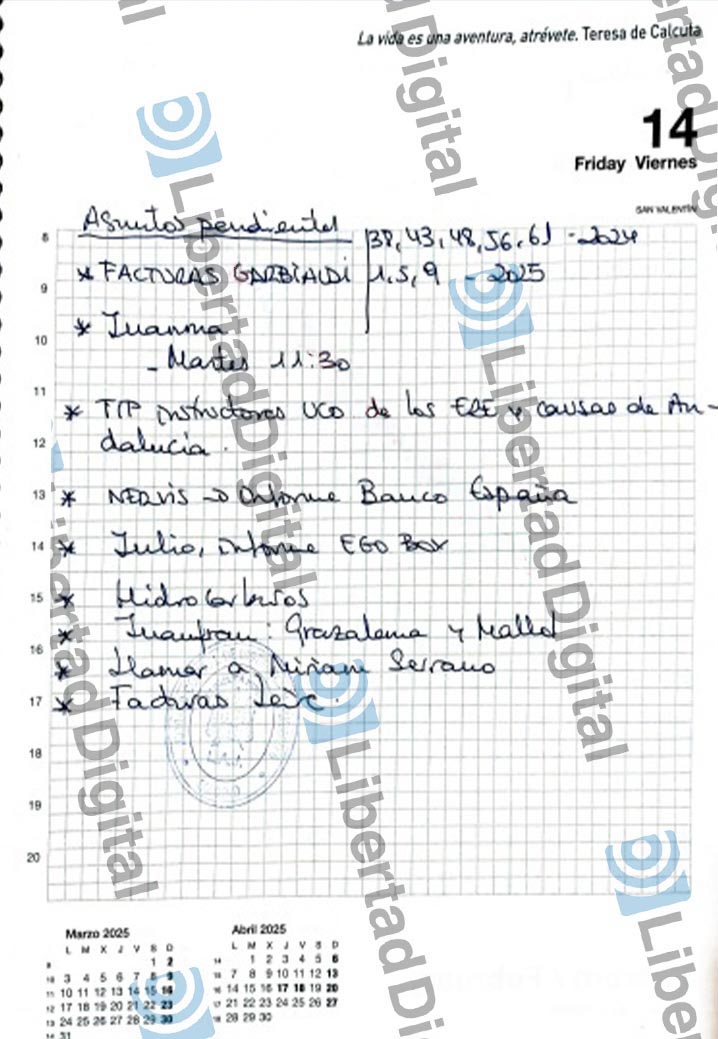 La vida es una aventura, atrévete. Teresa de Calcuta
14
Friday Viernes
SAN VALENTÍN
Asuntos pendientes
* FACTURAS GARBIALDI
38, 43, 48, 56, 61 - 2024
1, 5, 9 - 2025
* Juanma
- Martes 11:30
* TIP instructores UCO de los ERE y causas de An-
dalucía.
* NERVIS → Informe Banco España
* Julio, informe EGO BOX
* Hidrocarburos
* Juanfran: Grazalema y
* Llamar a Miriam Serrano
* Facturas Leire.
8
9
10
11
12
13
14
15
16
17
18
19
20
Marzo 2025
L M X J V S D
9 1 2
10 3 4 5 6 7 8 9
11 10 11 12 13 14 15 16
12 17 18 19 20 21 22 23
13 24 25 26 27 28 29 30
14 31
Abril 2025
L M X J V S D
14 1 2 3 4 5 6
15 7 8 9 10 11 12 13
16 14 15 16 17 18 19 20
17 21 22 23 24 25 26 27
18 28 29 30
Libertad Digital
Libertad Digital
Libertad Digital
Libertad Digital
Libertad Digital
Libertad Digital